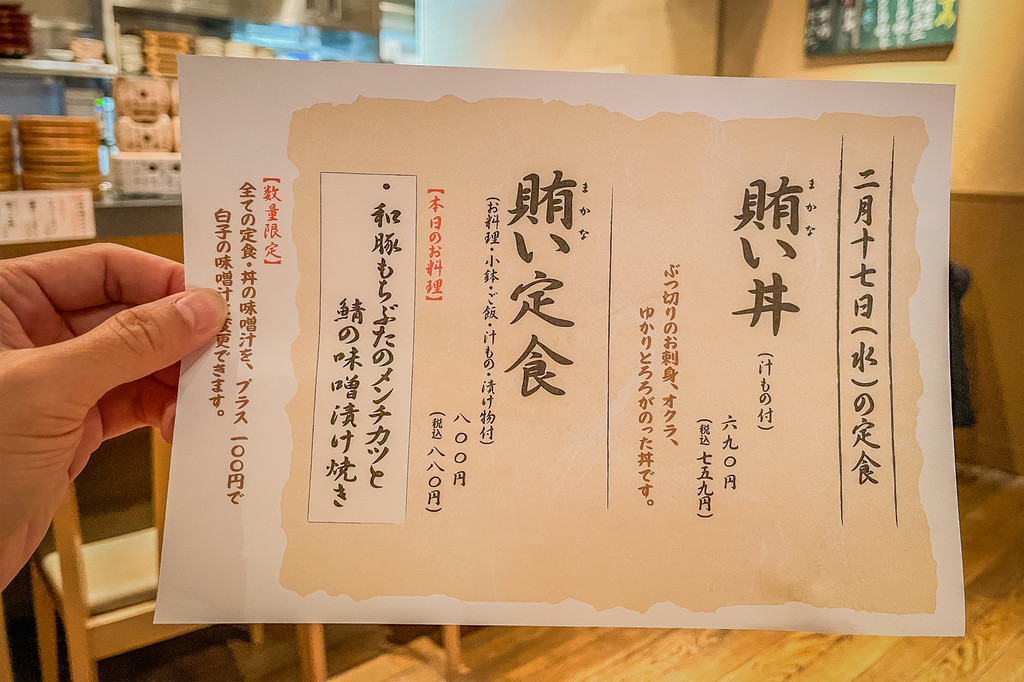 二月十七日(水)の定食
賄い丼
まかな
(汁もの付)
六九〇円
(税込 七五九円)
ぶつ切りのお刺身、オクラ、
ゆかりとろろがのった丼です。
賄い定食
まかな
(お料理・小鉢・ご飯・汁もの・漬け物付)
八〇〇円
(税込 八八〇円)
【本日のお料理】
・和豚もちぶたのメンチカツと
鯖の味噌漬け焼き
【数量限定】
全ての定食・丼の味噌汁を、プラス一〇〇円で
白子の味噌汁 変更できます。